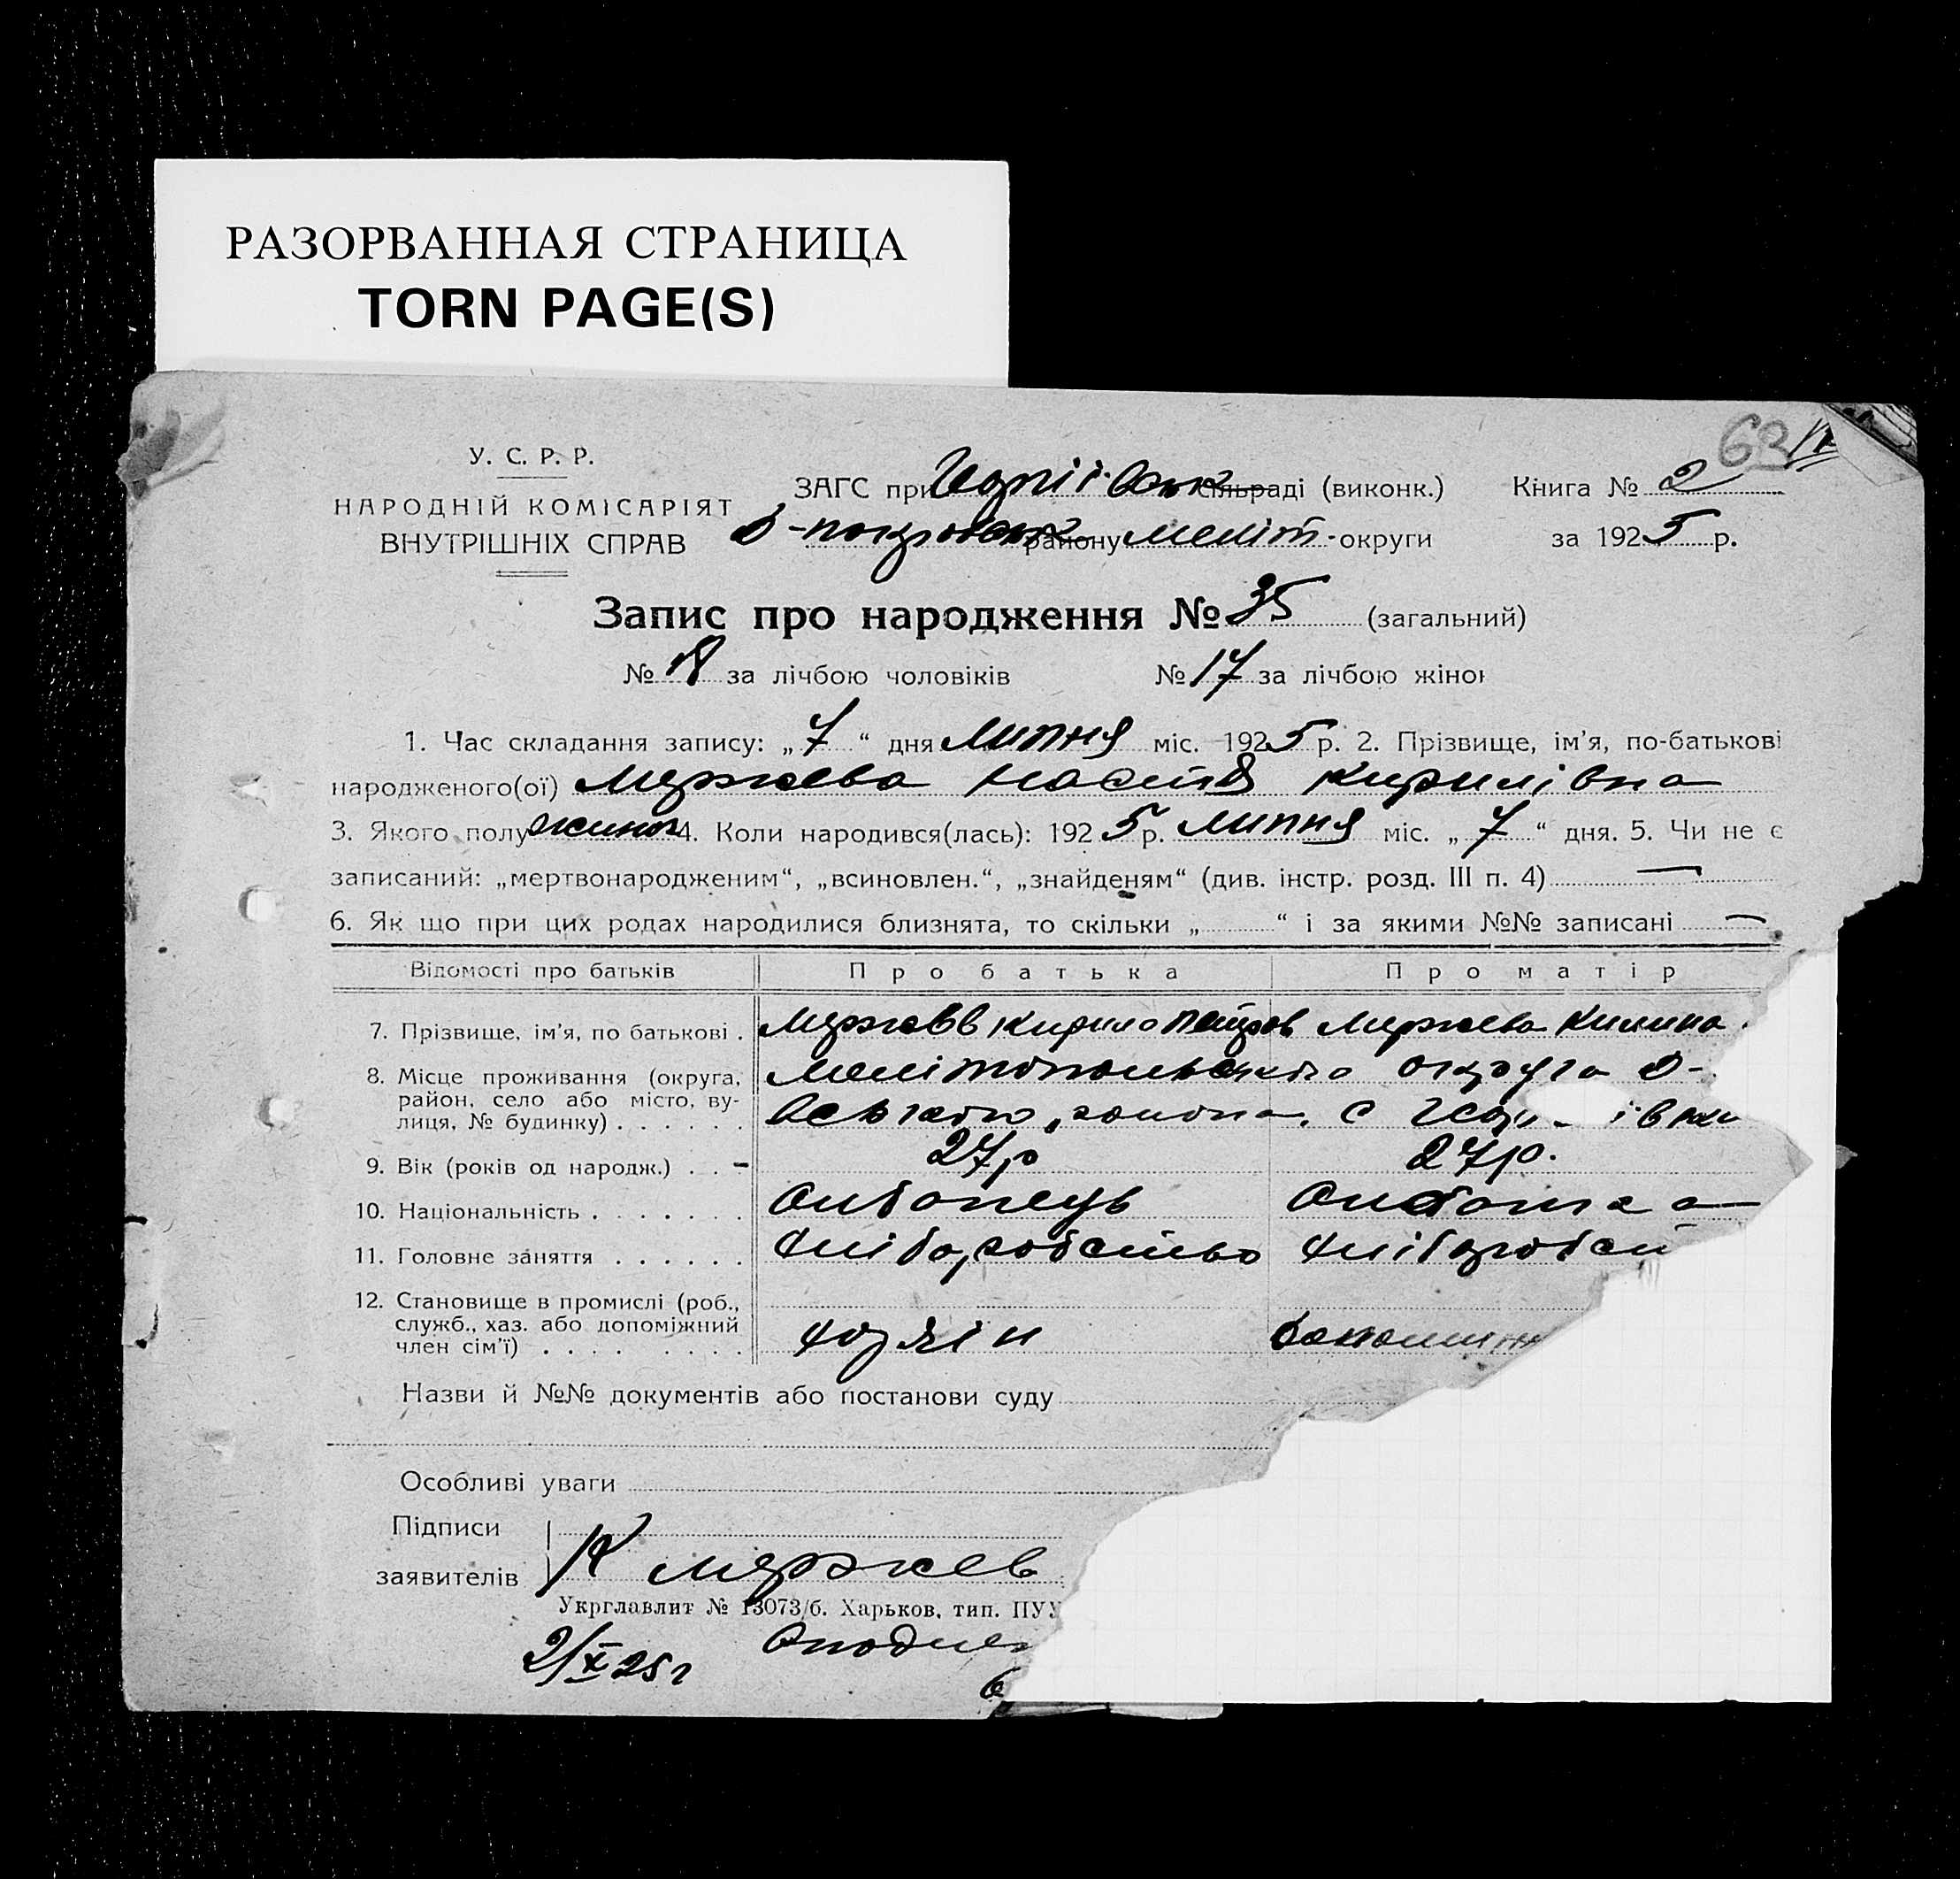 РАЗОРВАННАЯ СТРАНИЦА
TORN PAGE(S)
63
У. С. Р. Р.
НАРОДНІЙ КОМІСАРІЯТ
ВНУТРІШНІХ СПРАВ
ЗАГС при сільраді (виконк.) Книга № 2
району Меліт. округи за 1925 р.
Запис про народження № 35 (загальний)
№ за лічбою чоловіків № 17 за лічбою жінок
1. Час складання запису: „7“ дня липня міс. 1925 р. 2. Прізвище, ім'я, по-батькові
народженого(ої) Мержева Настя Кирилівна
3. Якого полу жіноч 4. Коли народився(лась): 1925 р. липня міс. „7“ дня. 5. Чи не є
записаний: „мертвонародженим“, „всиновлен.“, „знайденям“ (див. інстр. розд. III п. 4) —
6. Як що при цих родах народилися близнята, то скільки „ “ і за якими №№ записані —
Відомості про батьків Про батька Про матір
7. Прізвище, ім'я, по батькові . Мержев Кирило Петров Мержева Килина
8. Місце проживання (округа, Мелітопольського округа
район, село або місто, ву-
лиця, № будинку) . . . . . . району, с
9. Вік (років од народж.) . . 27 р 27 р.
10. Національність . . . . . . . Албанець Албанка
11. Головне заняття . . . . . . Хліборобство Хліборобст
12. Становище в промислі (роб.,
служб., хаз. або допоміжний
член сім'ї) . . . . . . . . хозяін
Назви й №№ документів або постанови суду
Особливі уваги
Підписи
заявителів К Мержев
Укрглавлит № 13073/б. Харьков, тип. ПУУ
2/X 25 г